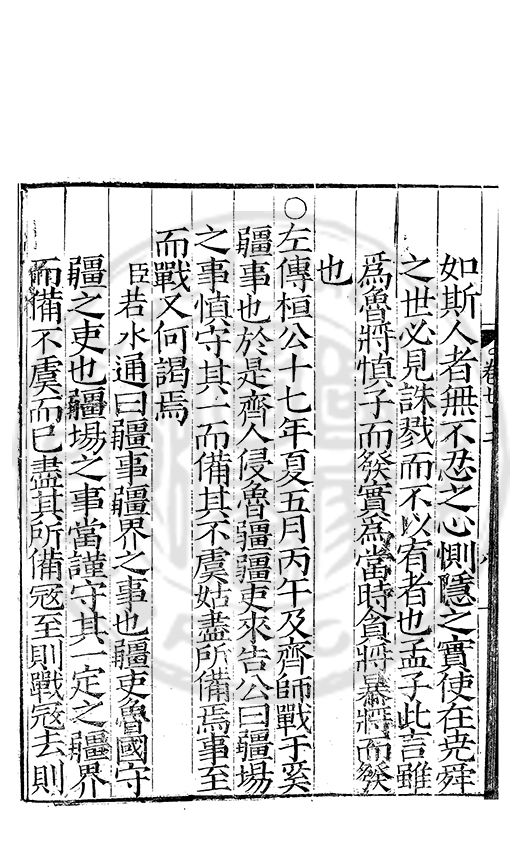 如斯人者無不忍之心惻隱之實使在堯舜
之世必見誅戮而不以宥者也孟子此言雖
爲魯將慎子而發實為當時貪將暴將而發
也
○左傳桓公十七年夏五月丙午及齊師戰于奚
疆事也於是齊人侵魯疆疆吏來告公曰疆埸
之事慎守其一而備其不虞姑盡所備焉事至
而戰又何謁焉
臣若水通曰疆事疆界之事也疆吏魯國守
疆之吏也疆埸之事當謹守其一定之疆界
而備不虞而已盡其所備寇至則戰寇去則